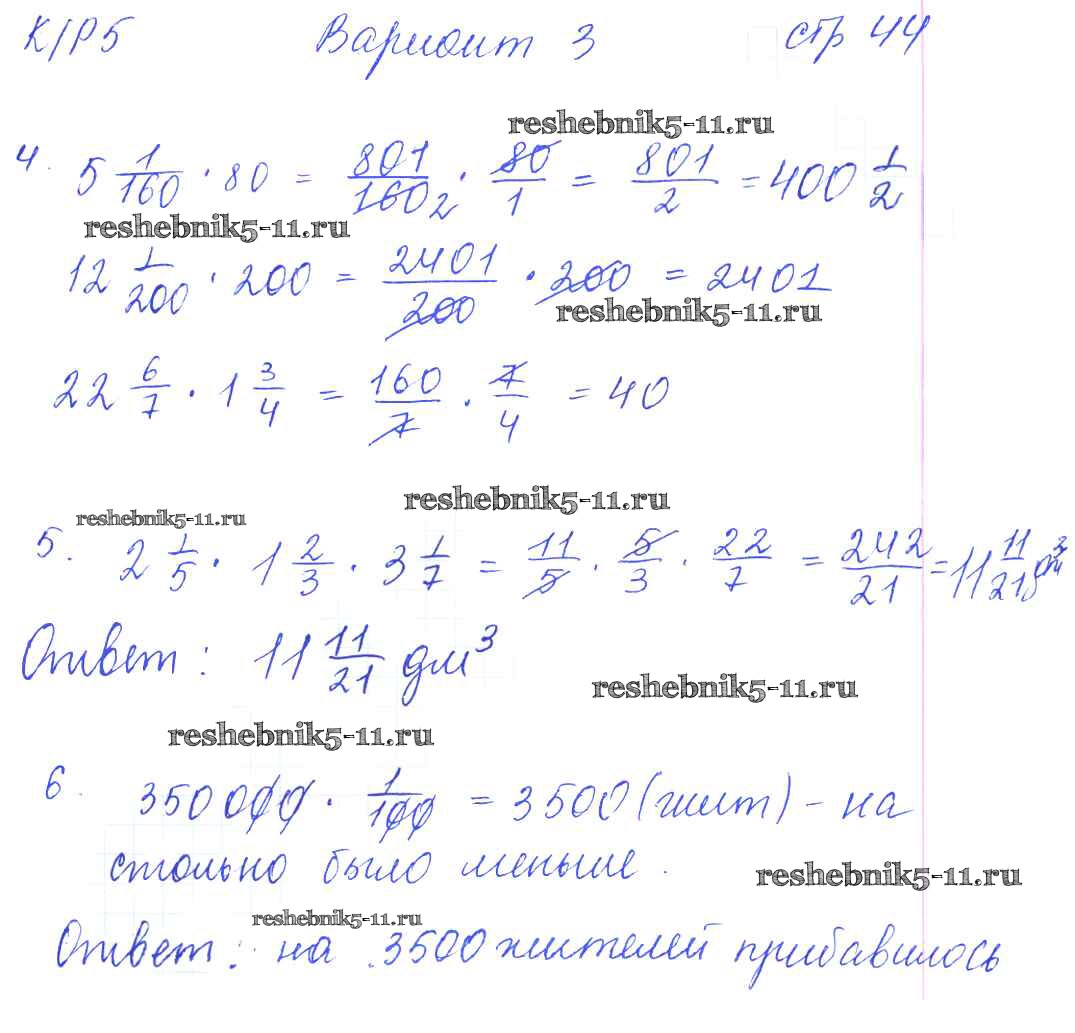 К/Р5 Вариант 3 стр 44
reshebnik5-11.ru
4. 5 1/160 · 80 = 801/160 2 · 80/1 = 801/2 = 400 1/2
reshebnik5-11.ru
12 1/200 · 200 = 2401/200 · 200 = 2401
reshebnik5-11.ru
22 6/7 · 1 3/4 = 160/7 · 7/4 = 40
reshebnik5-11.ru
reshebnik5-11.ru
5. 2 1/5 · 1 2/3 · 3 1/7 = 11/5 · 5/3 · 22/7 = 242/21 = 11 11/21 дм³
Ответ: 11 11/21 дм³
reshebnik5-11.ru
reshebnik5-11.ru
6. 350000 · 1/100 = 3500 (жит) - на
столько было меньше.
reshebnik5-11.ru
reshebnik5-11.ru
Ответ: на 3500 жителей прибавилось